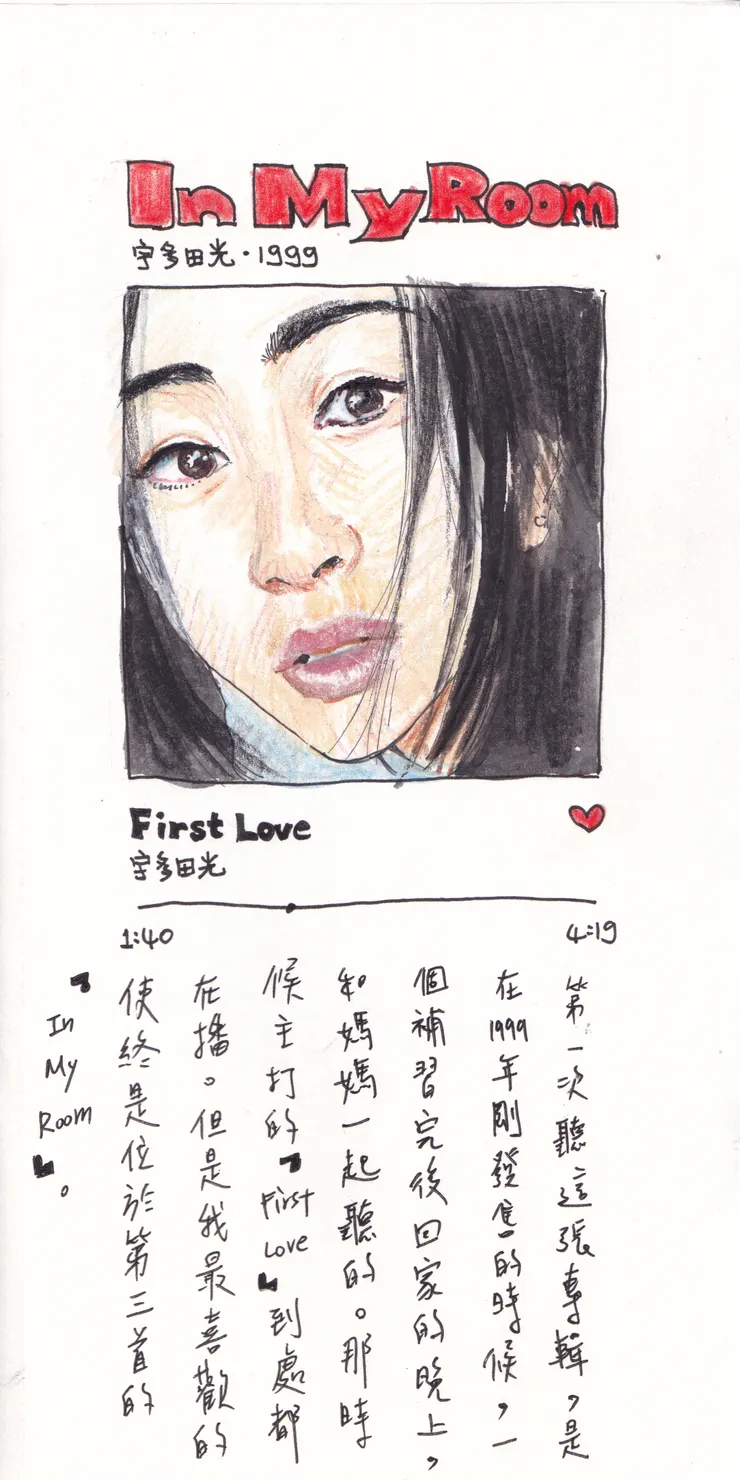 In My Room
宇多田光·1999
First Love
宇多田光
1:40
4:19
第一次聽這張專輯，是
在1999年剛發售的時候，一
個補習完後回家的晚上，
和媽媽一起聽的。那時
候主打的「First Love」到處都
在播。但是我最喜歡的
使終是位於第三首的
「In My Room」。